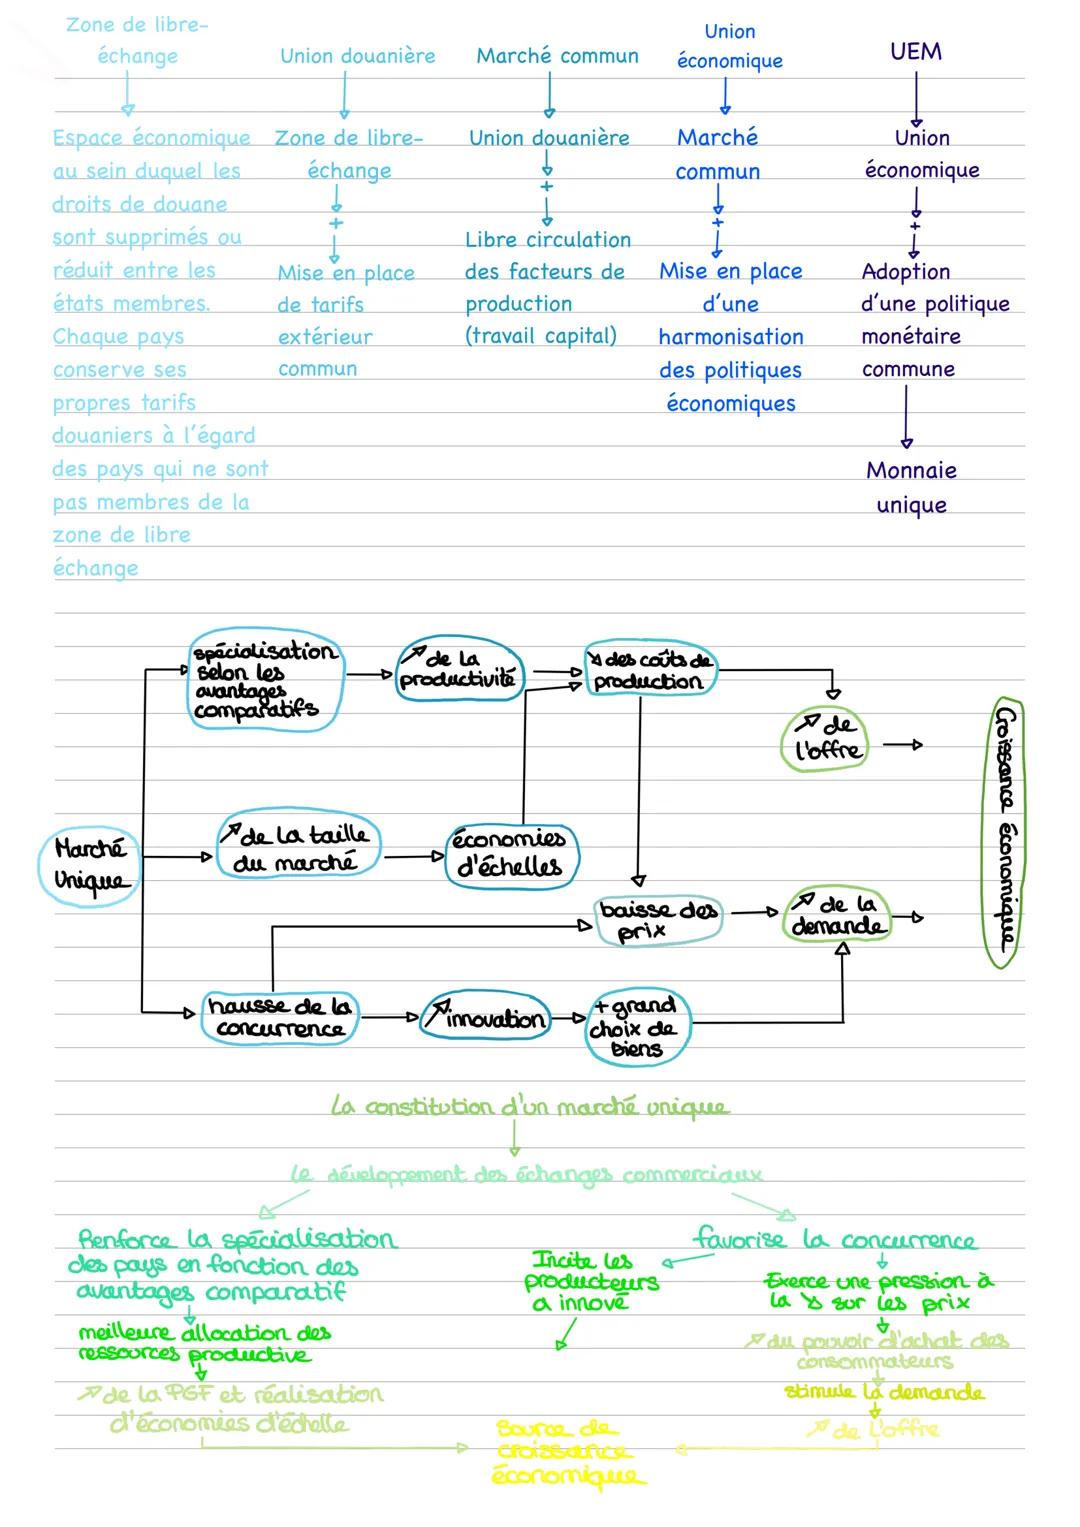 Zone de libre-
échange
Union douanière
Marché commun
Union
économique
UEM
Espace économique
au sein duquel les
droits de douane
sont supprimés ou
réduit entre les
états membres.
Chaque pays
conserve ses
propres tarifs
douaniers à l'égard
des pays qui ne sont
pas membres de la
zone de libre
échange
Zone de libre-
échange
+
Mise en place
de tarifs
extérieur
commun
Union douanière
+
Libre circulation
des facteurs de
production
(travail capital)
Marché
commun
+
Mise en place
d'une
harmonisation
des politiques
économiques
Union
économique
+
Adoption
d'une politique
monétaire
commune
Monnaie
unique
Marché
Unique
spécialisation
selon les
avantages
comparatifs
↗ de la
productivité
↘ des coûts de
production
↗ de
l'offre
↗ de la taille
du marché
économies
d'échelles
baisse des
prix
↗ de la
demande
hausse de la
concurrence
↗ innovation
+ grand
choix de
biens
Croissance économique
La constitution d'un marché unique
Le développement des échanges commerciaux
Renforce la spécialisation
des pays en fonction des
avantages comparatif
meilleure allocation des
ressources productive
↗ de la PGF et réalisation
d'économies d'échelle
favorise la concurrence
Incite les
producteurs
a innové
Exerce une pression à
la ↘ sur les prix
↗ du pouvoir d'achat des
consommateurs
stimule la demande
↗ de l'offre
Source de
croissance
économique